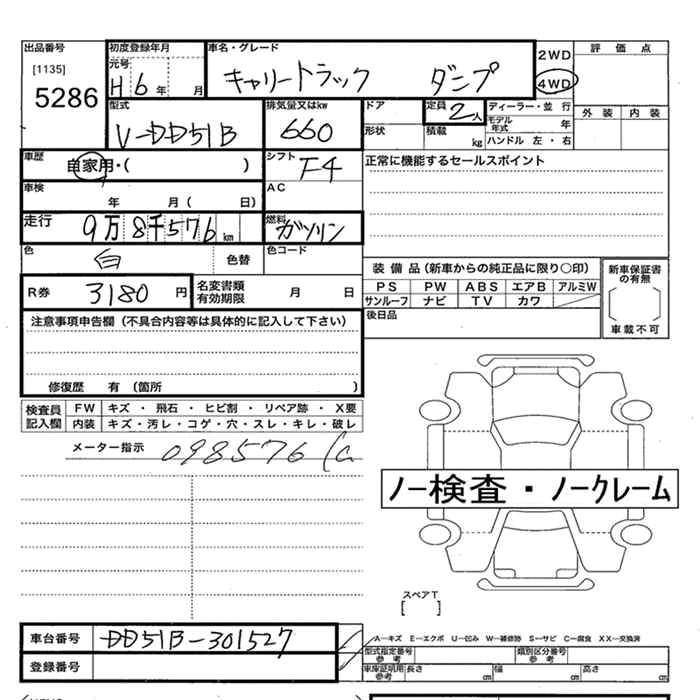 出品番号 初度登録年月 車名・グレード 2WD 評価点
[1135] 元号 H6年 月 キャリートラック ダンプ 4WD
5286 型式 排気量又はkw ドア 定員 2人 ディーラー・並行 外装 内装
V-DD51B 660 形状 積載 kg モデル年式 年 ハンドル 左・右
車歴 自家用・( ) シフト F4 正常に機能するセールスポイント
車検 年 月 ( 日) AC
走行 9万8千576km 燃料 ガソリン
色 白 色替 色コード
装備品(新車からの純正品に限り○印) 新車保証書の有無
R券 3180円 名変書類有効期限 月 日 PS PW ABS エアB アルミW
サンルーフ ナビ TV カワ
注意事項申告欄(不具合内容等は具体的に記入して下さい) 後日品 車載不可
修復歴 有 (箇所 )
検査員記入欄 FW キズ・飛石・ヒビ割・リペア跡・X要
内装 キズ・汚レ・コゲ・穴・スレ・キレ・破レ
メーター指示 098576
ノー検査・ノークレーム
スペアT
[ ]
車台番号 DD51B-301527 A−キズ E−エクボ U−凹み W−補修跡 S−サビ C−腐食 XX−交換済
型式指定番号 参考 類別区分番号 参考
登録番号 車庫証明用 参考 長さ cm 幅 cm 高さ cm